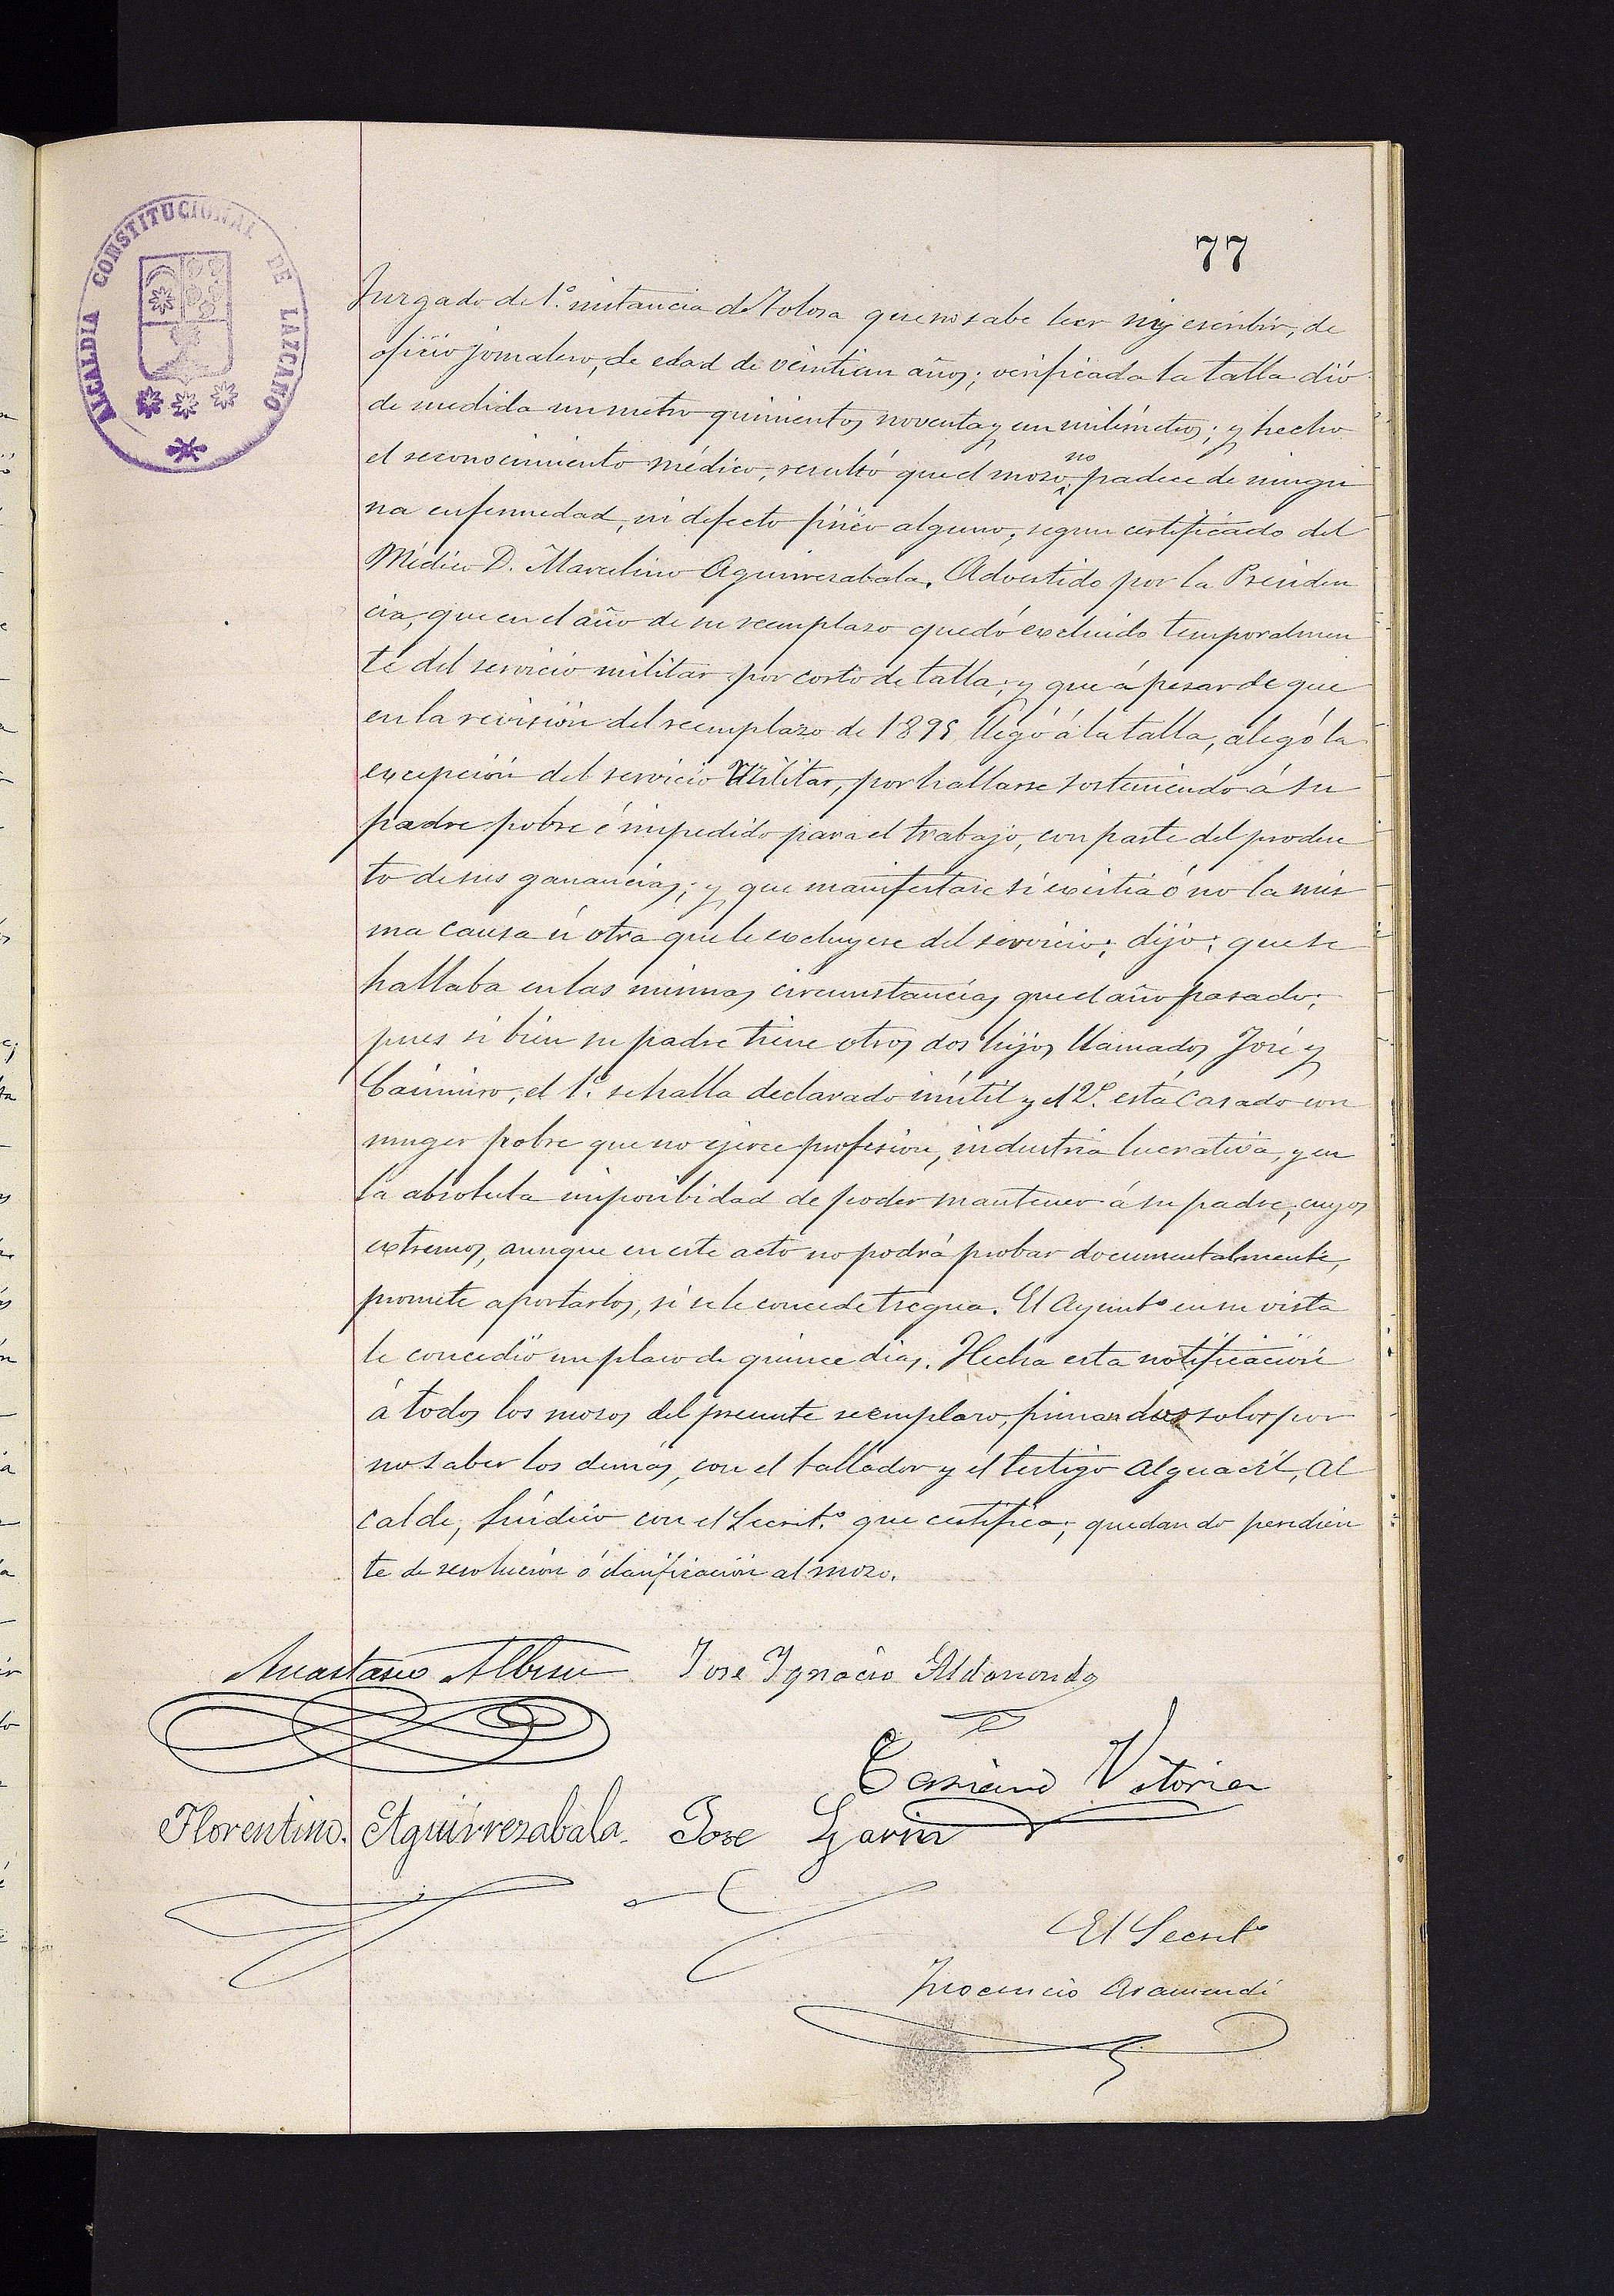 ALCALDIA CONSTITUCIONAL DE LAZCANO
77
Juzgado de 1ª. instancia de Tolosa que no sabe leer ni escribir, de
oficio jornalero, de edad de veintiun años; verificada la talla dió
de medida un metro quinientos noventa y un milímetros; y hecho
el reconocimiento médico, resultó que el mozo no padece de ningu
na enfermedad, ni defecto físico alguno, segun certificado del
Médico D. Marcelino Aguirrezabala. Advertido por la Presiden
cia, que en el año de su reemplazo quedó excluido temporalmen
te del servicio militar por corto de talla; y que á pesar de que
en la revisión del reemplazo de 1895 llegó á la talla, alegó la
excepción del servicio Militar, por hallarse sosteniendo á su
padre pobre é impedido para el trabajo, con parte del produc
to de sus ganancias; y que manifestase si existia ó no la mis
ma causa ú otra que le excluyese del servicio; dijo: que se
hallaba en las mismas circunstancias que el año pasado;
pues si bien su padre tiene otros dos hijos llamados José y
Casimiro, el 1º. se halla declarado inútil y el 2º. está casado con
muger pobre que no ejerce profesion, industria lucrativa, y en
la absoluta imposibidad de poder mantener á su padre, cuyos
extremos, aunque en este acto no podrá probar documentalmente,
promete aportarlos, si se le concede tregua. El Ayuntº en su vista
le concedió un plazo de quince dias. Hecha esta notificación
á todos los mozos del presente reemplazo, firman dos solos por
no saber los demás, con el tallador y el testigo Alguacil, Al
calde, Síndico con el Secretº. que certifica; quedando pendien
te de resolución ó clasificación al mozo.
Anastasio Albisu Jose Ignacio Aldasoro
Casiano Vitoria
Florentino Aguirrezabala Jose Garin
El Secretº
Inocencio Aramendi